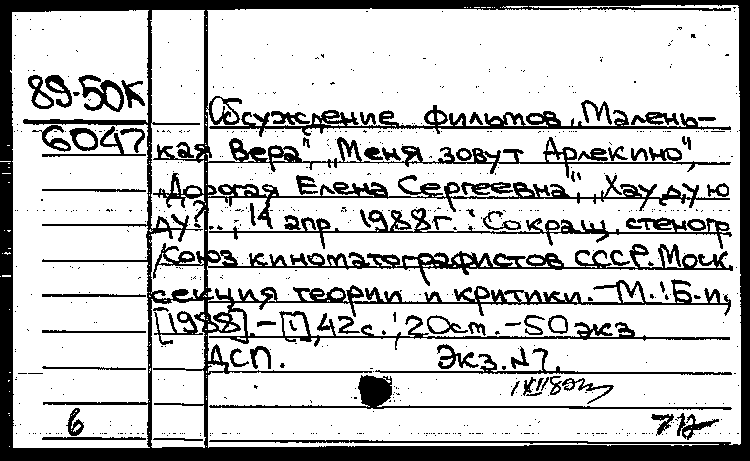 89-50К
6047
Обсуждение фильмов „Малень-
кая Вера", „Меня зовут Арлекино",
„Дорогая Елена Сергеевна", „Хау ду ю
ду?..", 14 апр. 1988г.: Сокращ. стеногр
/Союз киноматографистов СССР. Моск.
секция теории и критики. - М.: Б.и.,
[1988]. - [1], 42 с.; 20 см. - 50 экз.
ДСП. Экз. N 7.
6